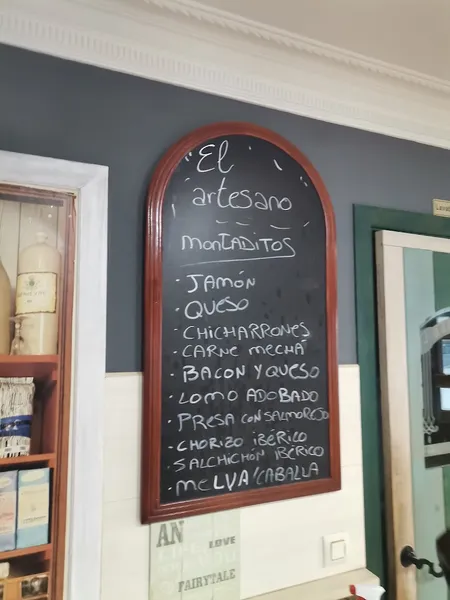 El
artesano
MONTADITOS
· JAMÓN
· QUESO
· CHICHARRONES
· CARNE MECHÁ
· BACON Y QUESO
· LOMO ADOBADO
· PRESA CON SALMOREJO
· CHORIZO IBÉRICO
· SALCHICHÓN IBÉRICO
· MELVA/CABALLA
AN
LOVE
FAIRYTALE